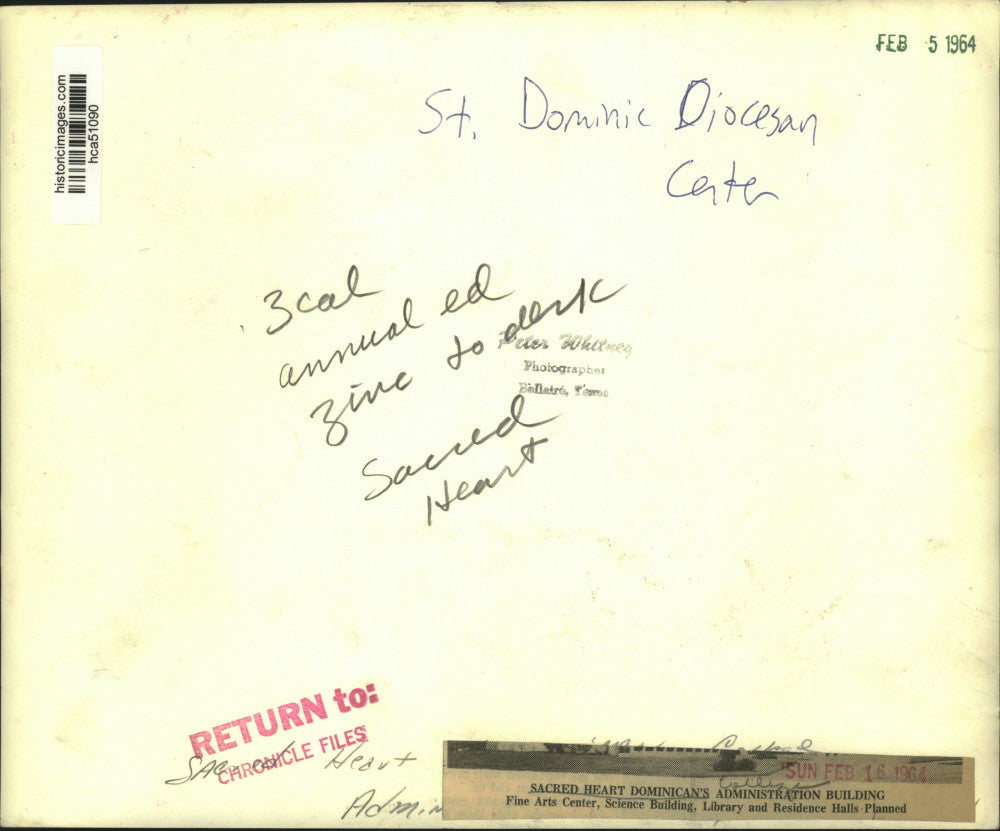 FEB 5 1964
historicimages.com
hca51090
St. Dominic Diocesan
Center
3 col
annual ed
zinc to desk
Peter Whitney
Photographer
Bellaire, Texas
Sacred
Heart
RETURN to:
CHRONICLE FILES
Sacred Heart
Admin
College
SUN FEB 16 1964
SACRED HEART DOMINICAN'S ADMINISTRATION BUILDING
Fine Arts Center, Science Building, Library and Residence Halls Planned